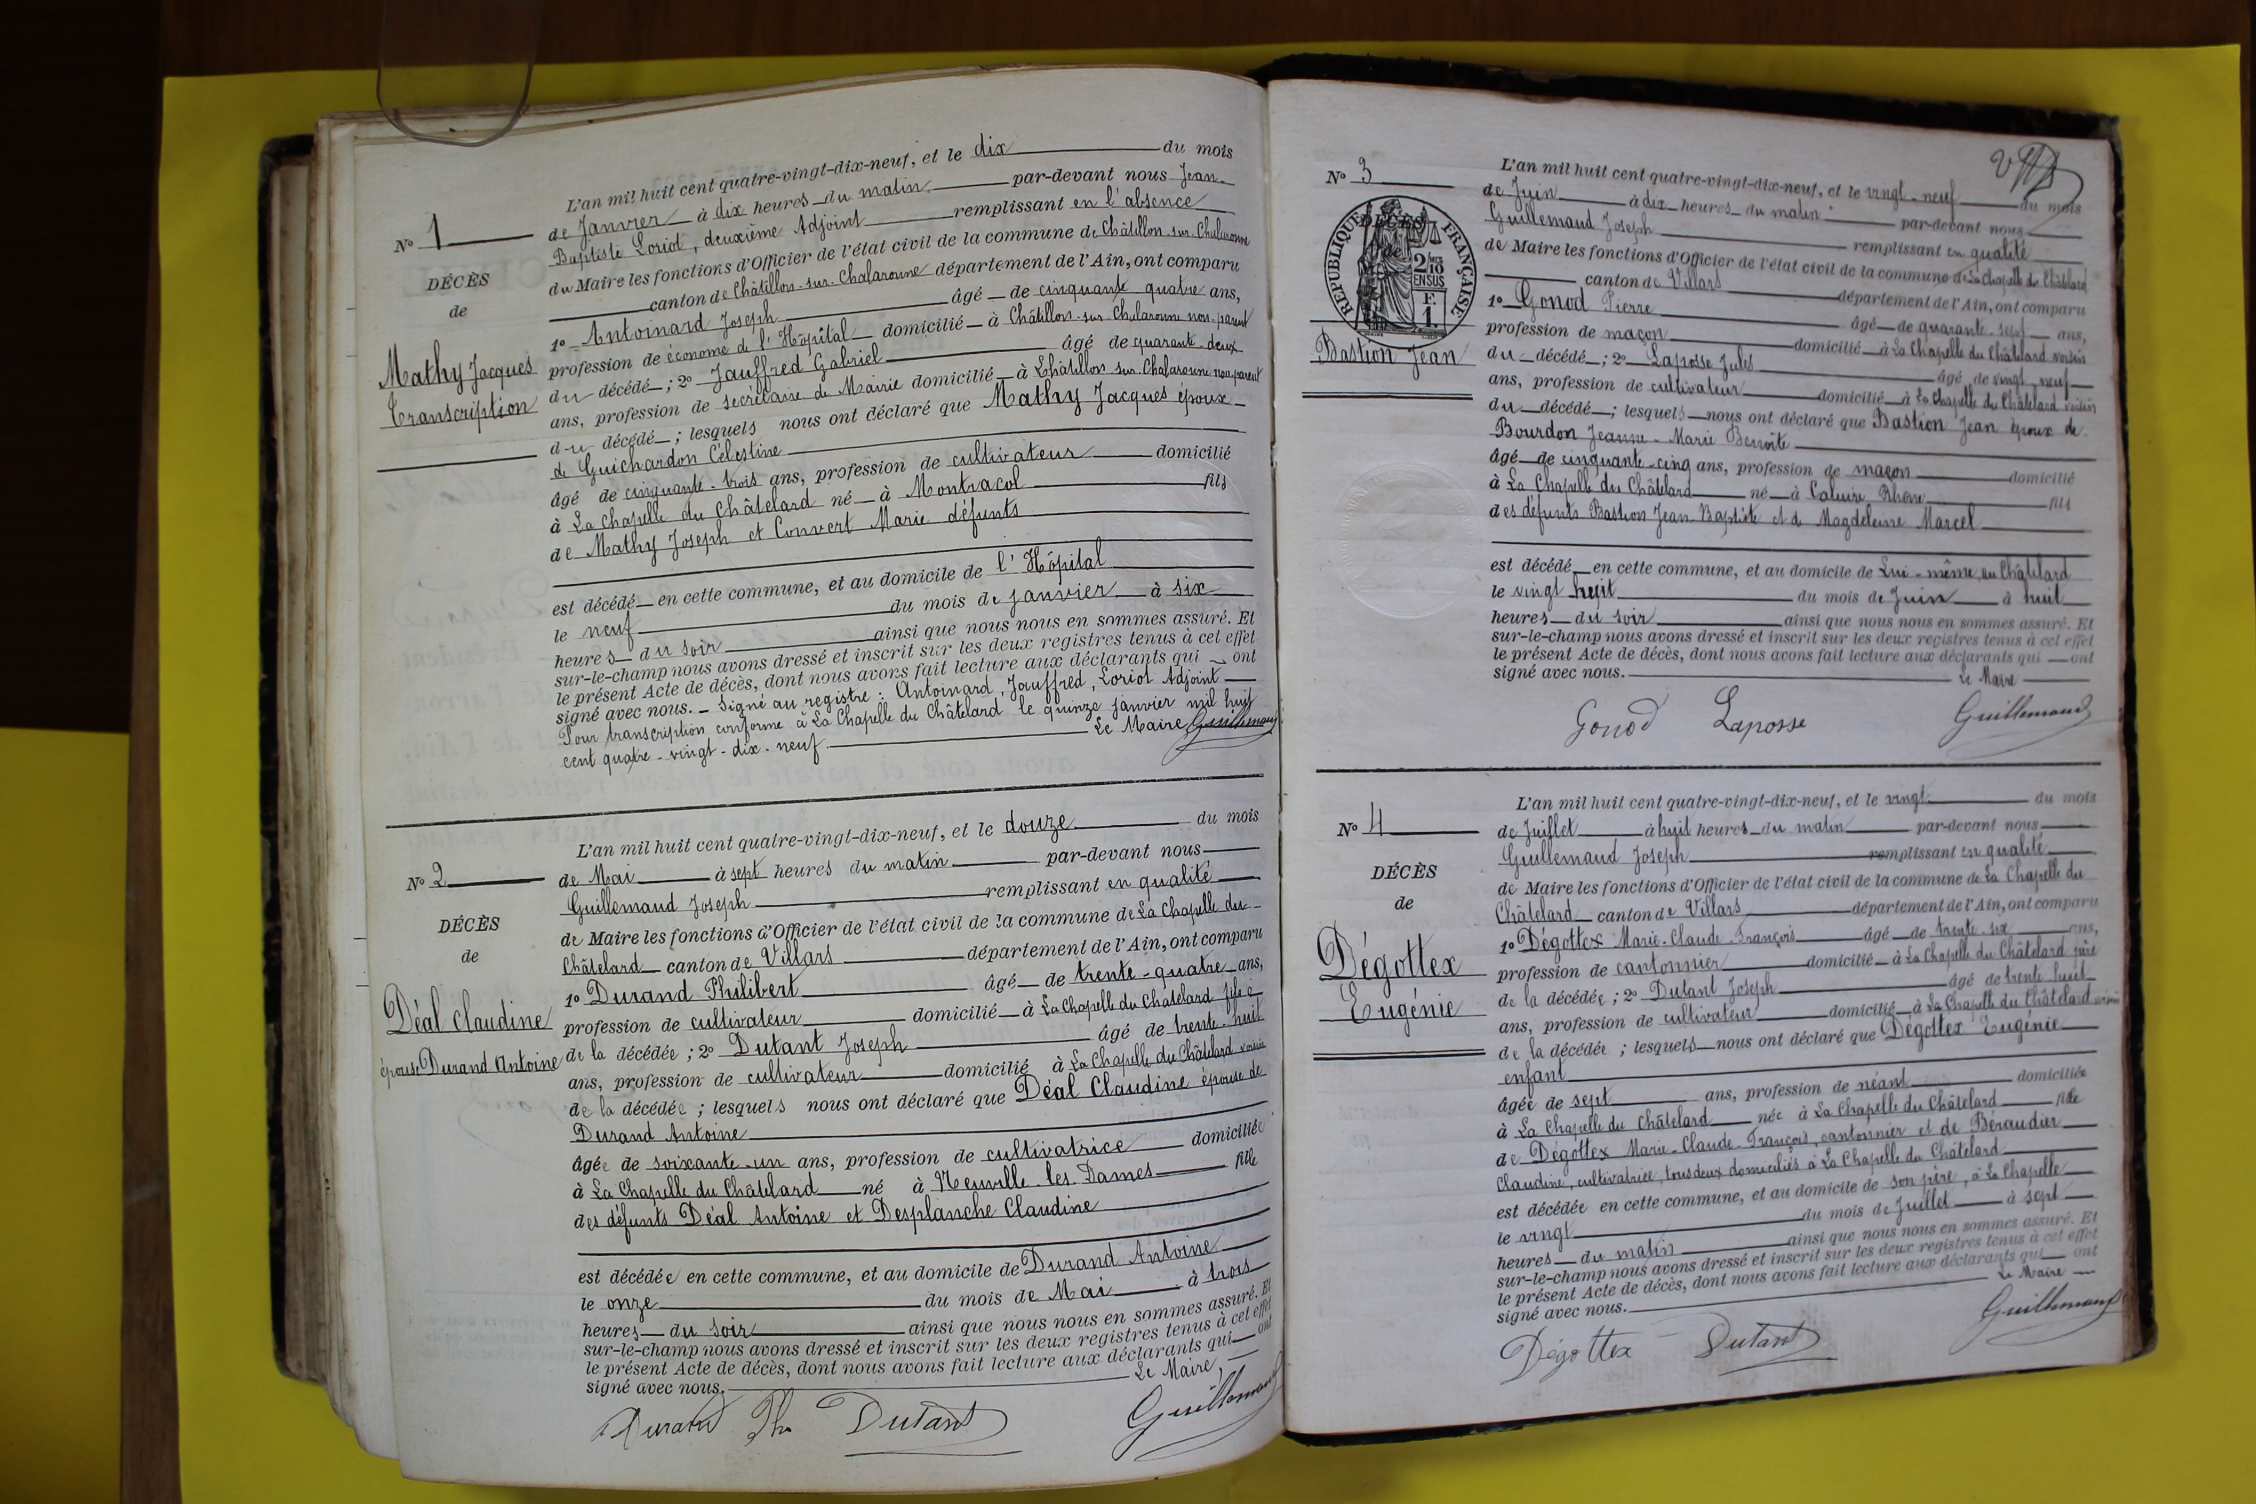 L'an mil huit cent quatre-vingt-dix-neuf, et le dix du mois
de Janvier à dix heures du matin par-devant nous Jean
Baptiste Loriot, deuxième Adjoint remplissant en l'absence
du Maire les fonctions d'Officier de l'état civil de la commune de Châtillon-sur-Chalaronne
canton de Châtillon-sur-Chalaronne département de l'Ain, ont comparu
1o Antoinard Joseph âgé de cinquante quatre ans,
profession de économe de l'Hôpital domicilié à Châtillon-sur-Chalaronne non parent
du décédé ; 2o Jauffred Gabriel âgé de quarante-deux
ans, profession de secrétaire de Mairie domicilié à Châtillon-sur-Chalaronne non parent
du décédé ; lesquels nous ont déclaré que Mathy Jacques époux
de Guichardon Célestine
âgé de cinquante-trois ans, profession de cultivateur domicilié
à La Chapelle du Châtelard né à Montracol fils
de Mathy Joseph et Convert Marie défunts
est décédé en cette commune, et au domicile de l'Hôpital
le neuf du mois de janvier à six
heures du soir ainsi que nous nous en sommes assuré. Et
sur-le-champ nous avons dressé et inscrit sur les deux registres tenus à cet effet
le présent Acte de décès, dont nous avons fait lecture aux déclarants qui ont
signé avec nous. - Signé au registre : Antoinard, Jauffred, Loriot Adjoint
Pour transcription conforme à La Chapelle du Châtelard le quinze janvier mil huit
cent quatre-vingt-dix-neuf Le Maire Guillemaud
No 1
DÉCÈS
de
Mathy Jacques
Transcription
L'an mil huit cent quatre-vingt-dix-neuf, et le douze du mois
de Mai à sept heures du matin par-devant nous
Guillemaud Joseph remplissant en qualité
de Maire les fonctions d'Officier de l'état civil de la commune de La Chapelle du
Châtelard canton de Villars département de l'Ain, ont comparu
1o Durand Philibert âgé de trente-quatre ans,
profession de cultivateur domicilié à La Chapelle du Chatelard fils
de la décédée ; 2o Dutant Joseph âgé de trente-huit
ans, profession de cultivateur domicilié à La Chapelle du Châtelard voisin
de la décédée ; lesquels nous ont déclaré que Déal Claudine épouse de
Durand Antoine
âgée de soixante-un ans, profession de cultivatrice domiciliée
à La Chapelle du Châtelard né à Neuville-les-Dames fille
des défunts Déal Antoine et Desplanche Claudine
est décédée en cette commune, et au domicile de Durand Antoine
le onze du mois de Mai à trois
heures du soir ainsi que nous nous en sommes assuré. Et
sur-le-champ nous avons dressé et inscrit sur les deux registres tenus à cet effet
le présent Acte de décès, dont nous avons fait lecture aux déclarants qui ont
signé avec nous. Le Maire,
Durand Ph Dutant Guillemaud
No 2
DÉCÈS
de
Déal Claudine
épouse Durand Antoine
L'an mil huit cent quatre-vingt-dix-neuf, et le vingt-neuf du mois
de Juin à dix heures du matin par-devant nous
Guillemaud Joseph remplissant en qualité
de Maire les fonctions d'Officier de l'état civil de la commune de La Chapelle du Châtelard
canton de Villars département de l'Ain, ont comparu
1o Gonod Pierre âgé de quarante-sept ans,
profession de maçon domicilié à La Chapelle du Châtelard voisin
du décédé ; 2o Laposse Jules âgé de vingt-neuf
ans, profession de cultivateur domicilié à La Chapelle du Châtelard voisin
du décédé ; lesquels nous ont déclaré que Bastion Jean époux de
Bourdon Jeanne-Marie Benoite
âgé de cinquante-cinq ans, profession de maçon domicilié
à La Chapelle du Châtelard né à Caluire Rhône fils
des défunts Bastion Jean Baptiste et de Magdeleine Marcel
est décédé en cette commune, et au domicile de Lui-même au Châtelard
le vingt huit du mois de Juin à huit
heures du soir ainsi que nous nous en sommes assuré. Et
sur-le-champ nous avons dressé et inscrit sur les deux registres tenus à cet effet
le présent Acte de décès, dont nous avons fait lecture aux déclarants qui ont
signé avec nous. Le Maire
Gonod Laposse Guillemaud
No 3
DÉCÈS
de
RÉPUBLIQUE FRANÇAISE
2/10
EN SUS
F.
1.
Bastion Jean
L'an mil huit cent quatre-vingt-dix-neuf, et le vingt du mois
de Juillet à huit heures du matin par-devant nous
Guillemaud Joseph remplissant en qualité
de Maire les fonctions d'Officier de l'état civil de la commune de La Chapelle du
Châtelard canton de Villars département de l'Ain, ont comparu
1o Dégottex Marie-Claude-François âgé de trente-six ans,
profession de cantonnier domicilié à La Chapelle du Châtelard père
de la décédée ; 2o Dutant Joseph âgé de trente huit
ans, profession de cultivateur domicilié à La Chapelle du Châtelard voisin
de la décédée ; lesquels nous ont déclaré que Dégottex Eugénie
enfant
âgée de sept ans, profession de néant domiciliée
à La Chapelle du Châtelard née à La Chapelle du Châtelard fille
de Dégottex Marie-Claude-François, cantonnier et de Béraudier
Claudine, cultivatrice, tous deux domiciliés à La Chapelle du Châtelard
est décédée en cette commune, et au domicile de son père, à La Chapelle
le vingt du mois de Juillet à sept
heures du matin ainsi que nous nous en sommes assuré. Et
sur-le-champ nous avons dressé et inscrit sur les deux registres tenus à cet effet
le présent Acte de décès, dont nous avons fait lecture aux déclarants qui ont
signé avec nous. Le Maire
Dégottex Dutant Guillemaud
No 4
DÉCÈS
de
Dégottex
Eugénie